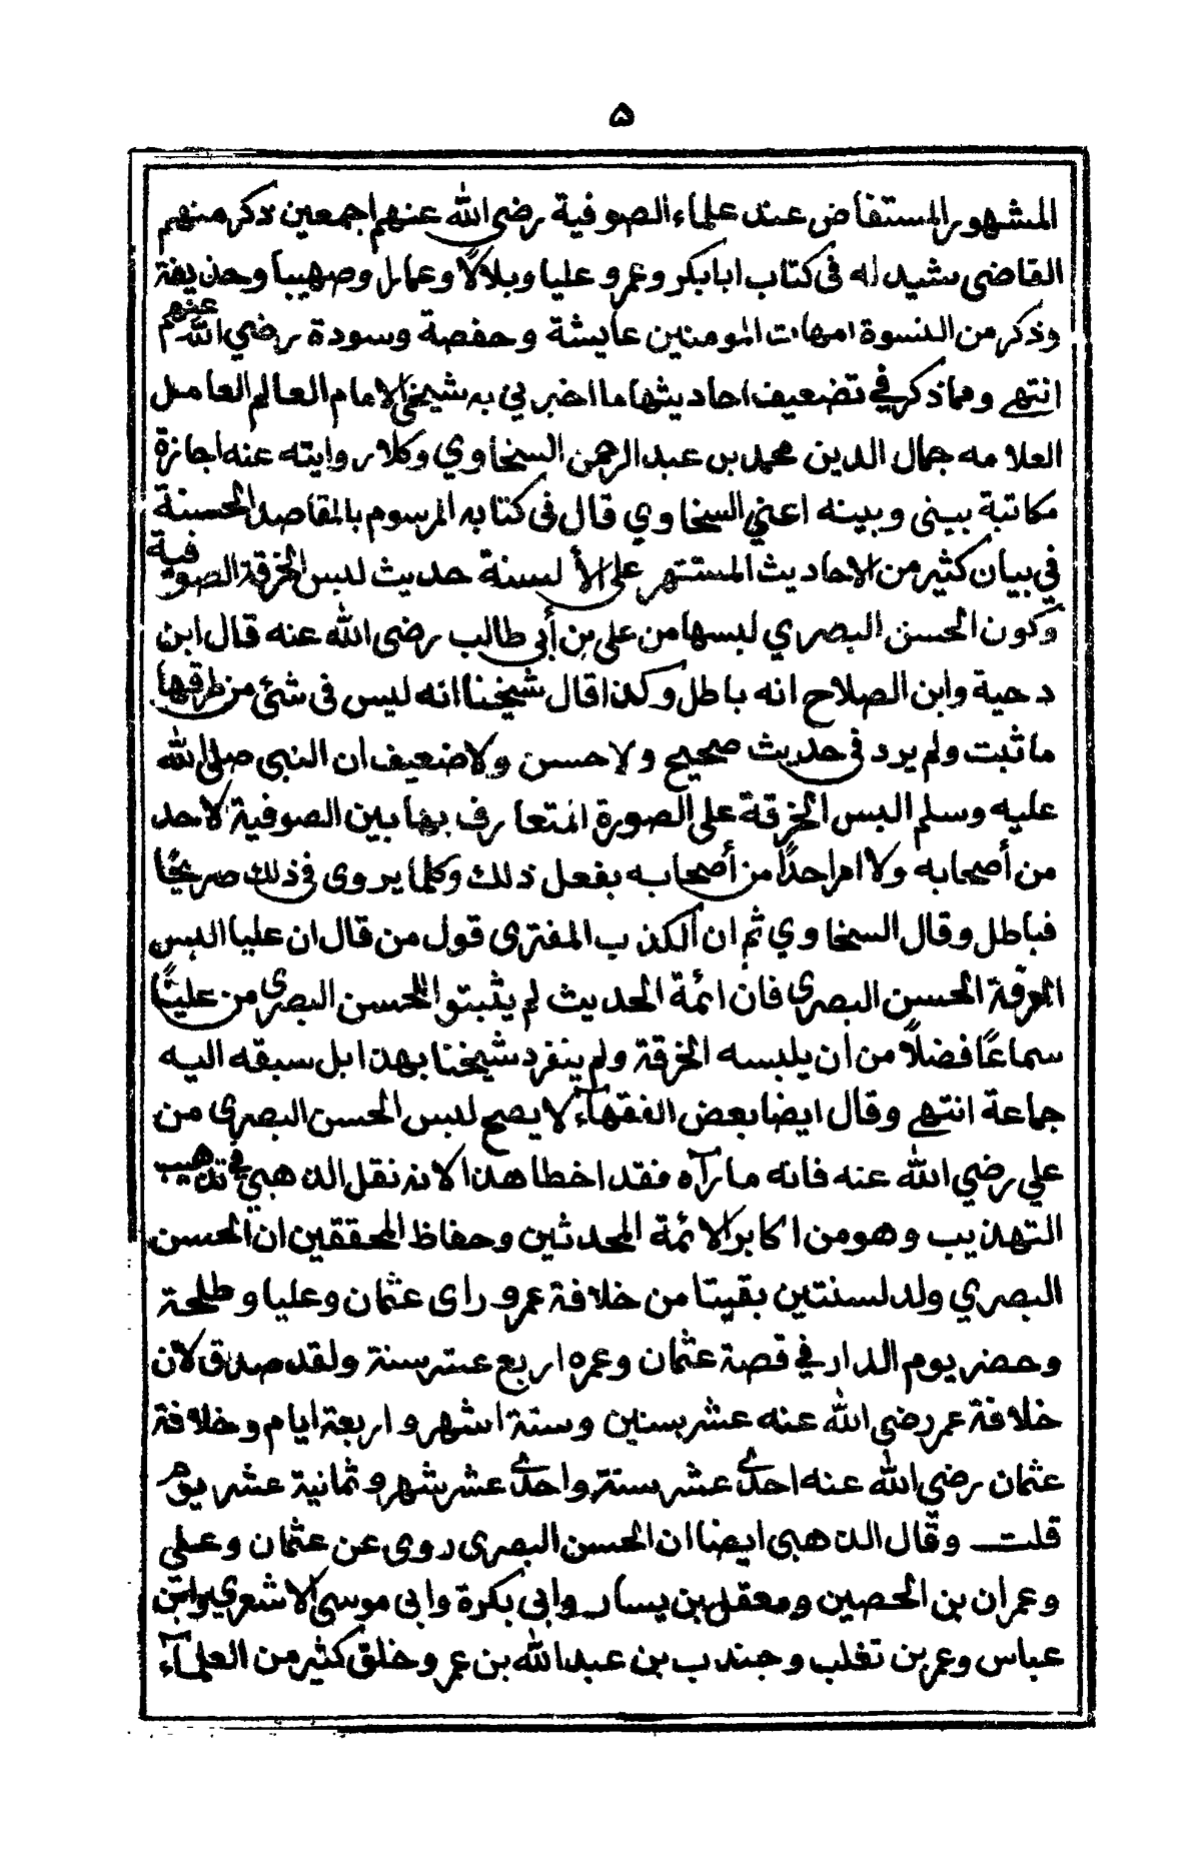 ٥
المشهور المستفاض عند علماء الصوفية رضى الله عنهم اجمعين ذكر منهم
القاضى شيدله فى كتاب ابابكر وعمر و عليا وبلالًا وعمار وصهيبا وحذيفة
وذكر من النسوة امهات المومنين عايشة وحفصة وسودة رضي الله عنهم
انتهے ومما ذكر في تضعيف احاديثها ما اخبرني به شيخي الامام العالم العامل
العلامه جمال الدين محمد بن عبد الرحمن السخاوي وكلا روايته عنه اجازة
مكاتبة بينى وبينه اعني السخاوي قال فى كتابه المرسوم بالمقاصد الحسنة
في بيان كثير من الاحاديث المشتهر على الألسنة حديث لبس الخرقة الصوفية
وكون الحسن البصري لبسها من على بن أبى طالب رضى الله عنه قال ابن
دحية وابن الصلاح انه باطل وكذا قال شيخنا انه ليس فى شئ من طرقها
ما ثبت ولم يرد فى حديث صحيح ولا حسن ولا ضعيف ان النبي صلى الله
عليه وسلم البس الخرقة على الصورة المتعارف بها بين الصوفية لاحد
من أصحابه ولا امر احدًا من أصحابه بفعل ذلك وكلما يروى فى ذلك صريحًا
فباطل وقال السخاوي ثم ان الكذب المفترى قول من قال ان عليا البس
الخرقة الحسن البصرى فان ائمة الحديث لم يثبتوا للحسن البصرى من عليًّا
سماعًا فضلًا من أن يلبسه الخرقة ولم ينفرد شيخنا بهذا بل سبقه اليه
جماعة انتهے وقال ايضا بعض الفقهآء لا يصح لبس الحسن البصرى من
علي رضي الله عنه فانه ما رآه فقد اخطا هذا لانه نقل الذهبي في تذهيب
التهذيب وهو من اكابر الائمة المحدثين وحفاظ المحققين ان الحسن
البصري ولد لسنتين بقيتا من خلافة عمر و راى عثمان وعليا وطلحة
وحضر يوم الدار في قصة عثمان وعمره اربع عشر سنة ولقد صدق لان
خلافة عمر رضى الله عنه عشر سنين وستة اشهر و اربعة ايام وخلافة
عثمان رضي الله عنه احدى عشر سنة واحدى عشر شهر و ثمانية عشر يوم
قلت وقال الذهبى ايضا ان الحسن البصرى روى عن عثمان وعلي
وعمران بن الحصين ومعقل بن يسار وابي بكرة وابى موسى الاشعري وابن
عباس وعمر بن تغلب وجندب بن عبد الله بن عمر وخلق كثير من العلمآء